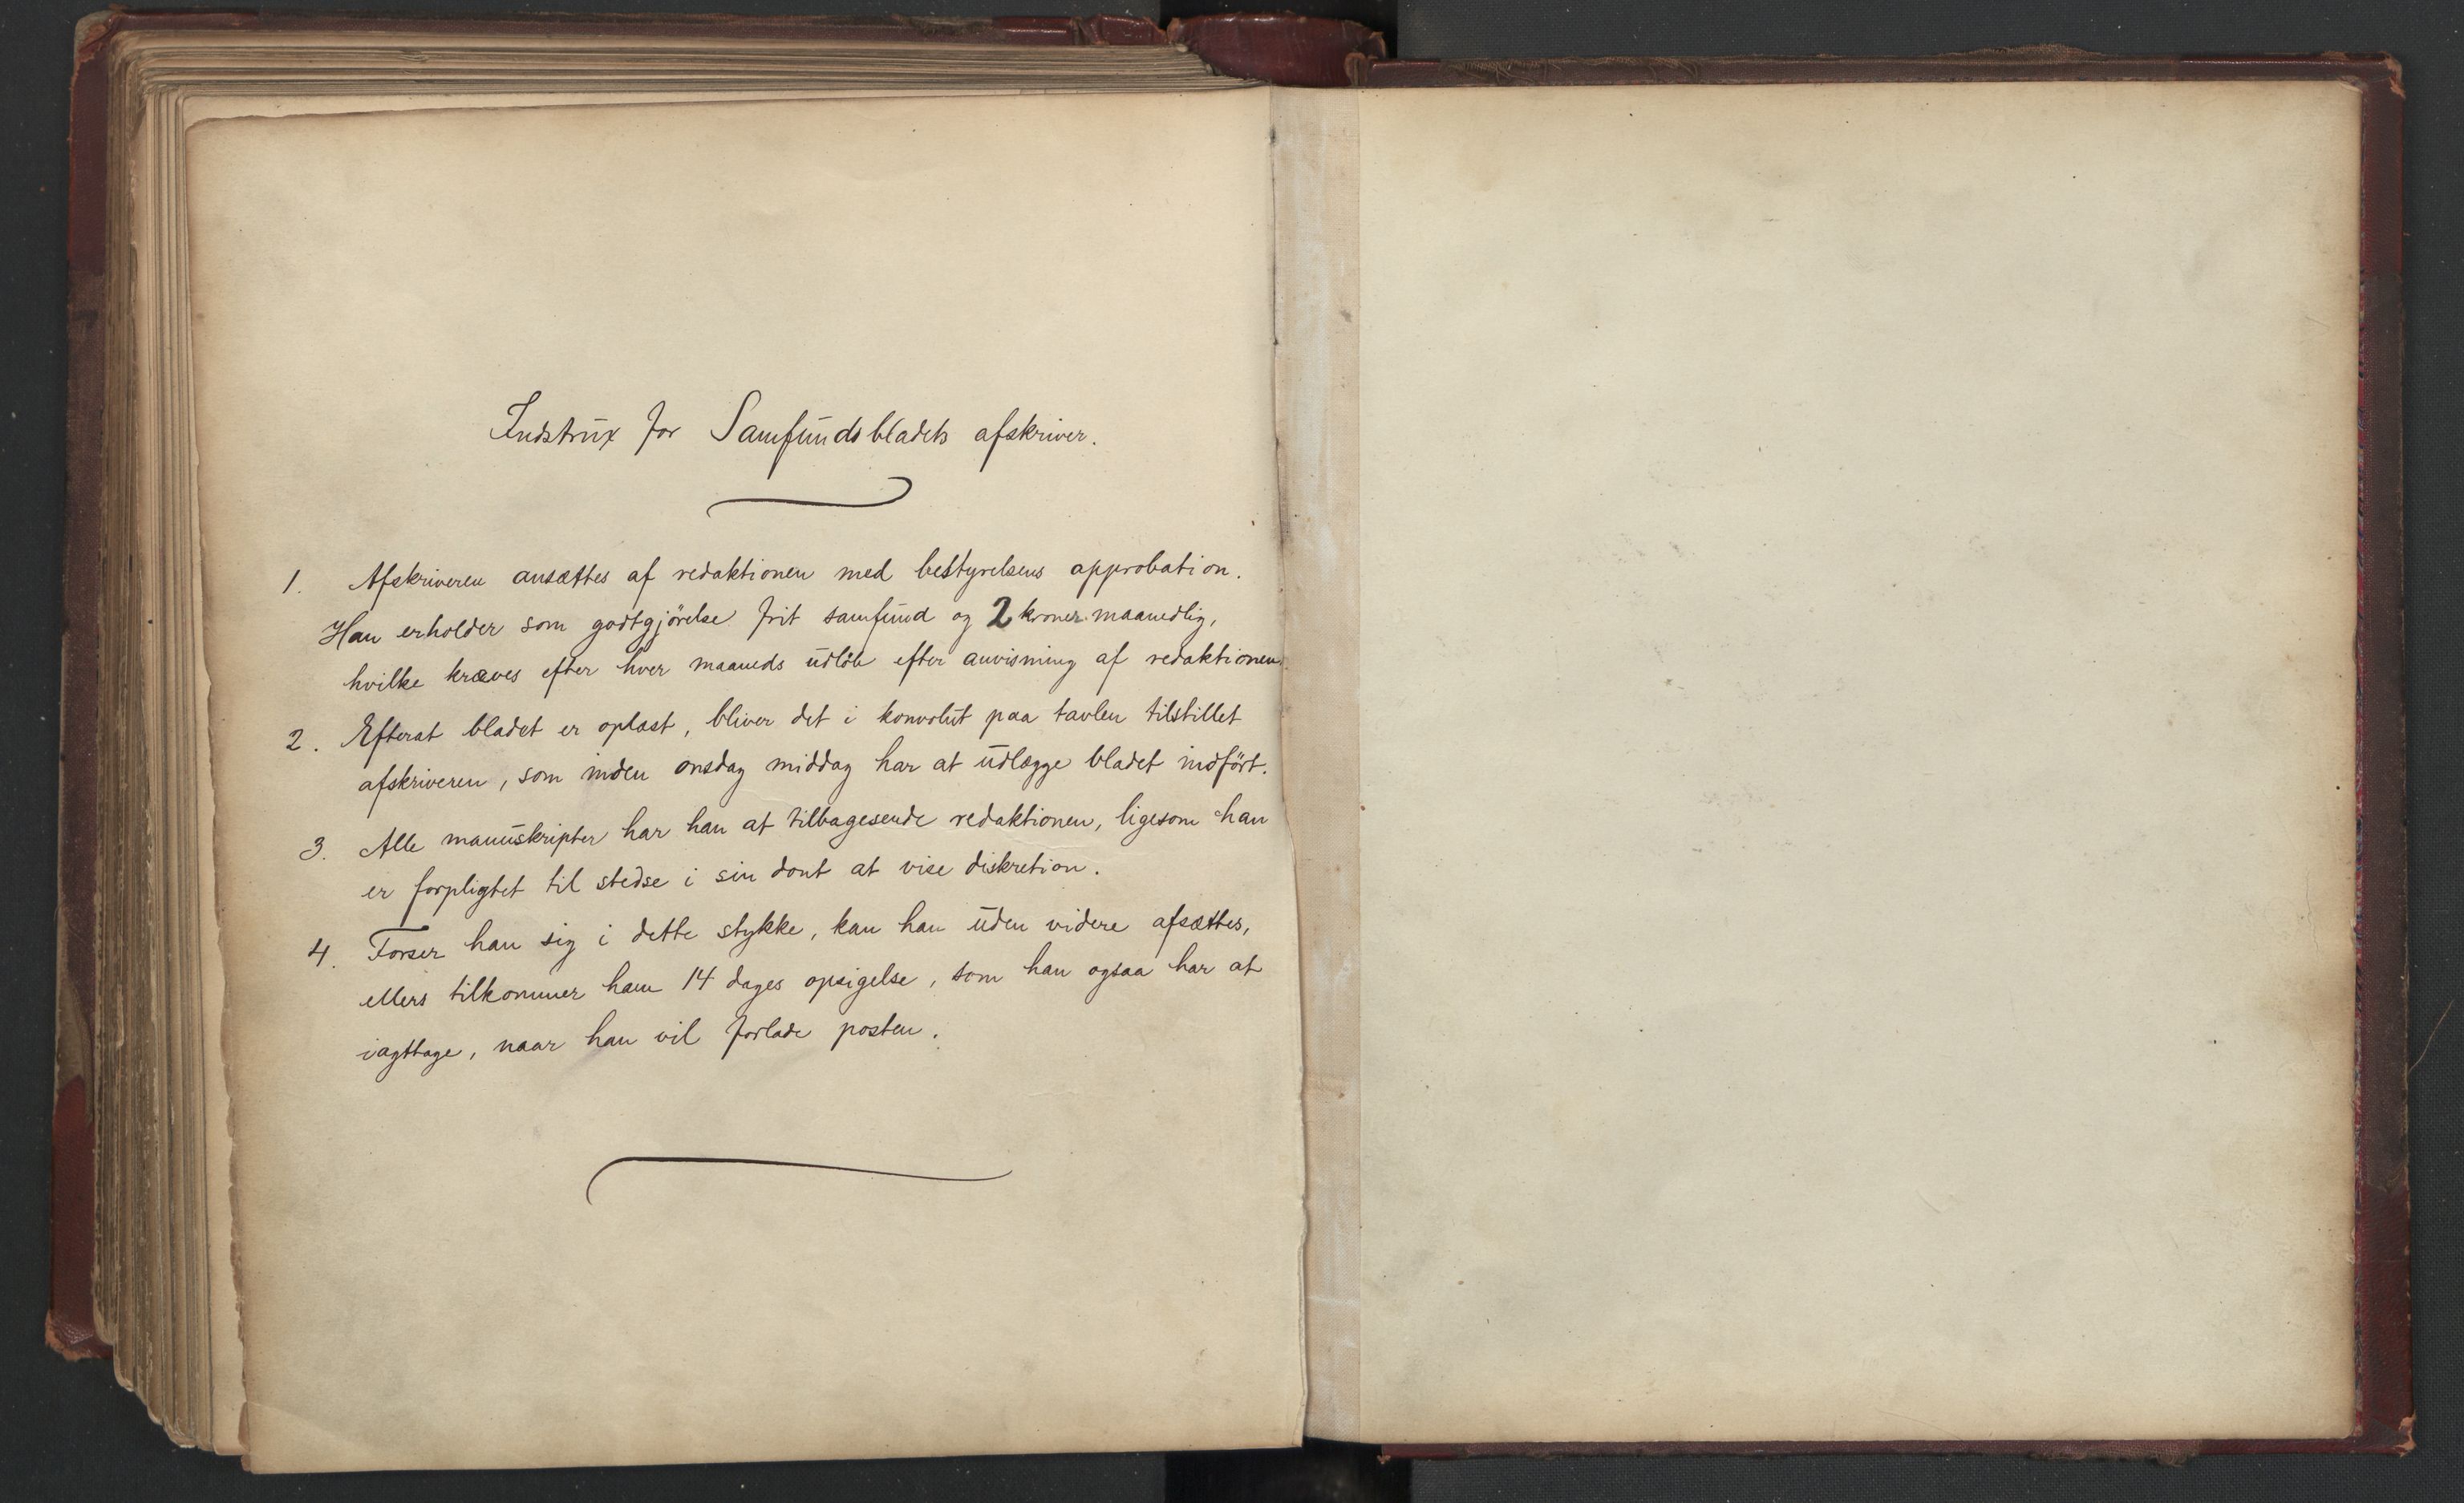 Indstrux for Samfundsbladets afskriver.
1. Afskriveren ansættes af redaktionen med bestyrelsens approbation.
Han erholder som godtgjörelse frit samfund og 2 kroner maanedlig,
hvilke kræves efter hver maaneds udlöb efter anvisning af redaktionen.
2. Efterat bladet er oplæst, bliver det i konvolut paa tavlen tilstillet
afskriveren, som inden onsdag middag har at udlægge bladet indfört.
3. Alle manuskripter har han at tilbagesende redaktionen, ligesom han
er forpligtet til stedse i sin dont at vise diskretion.
4. Forser han sig i dette stykke, kan han uden videre afsættes,
ellers tilkommer ham 14 dages opsigelse, som han ogsaa har at
iagttage, naar han vil forlade posten.